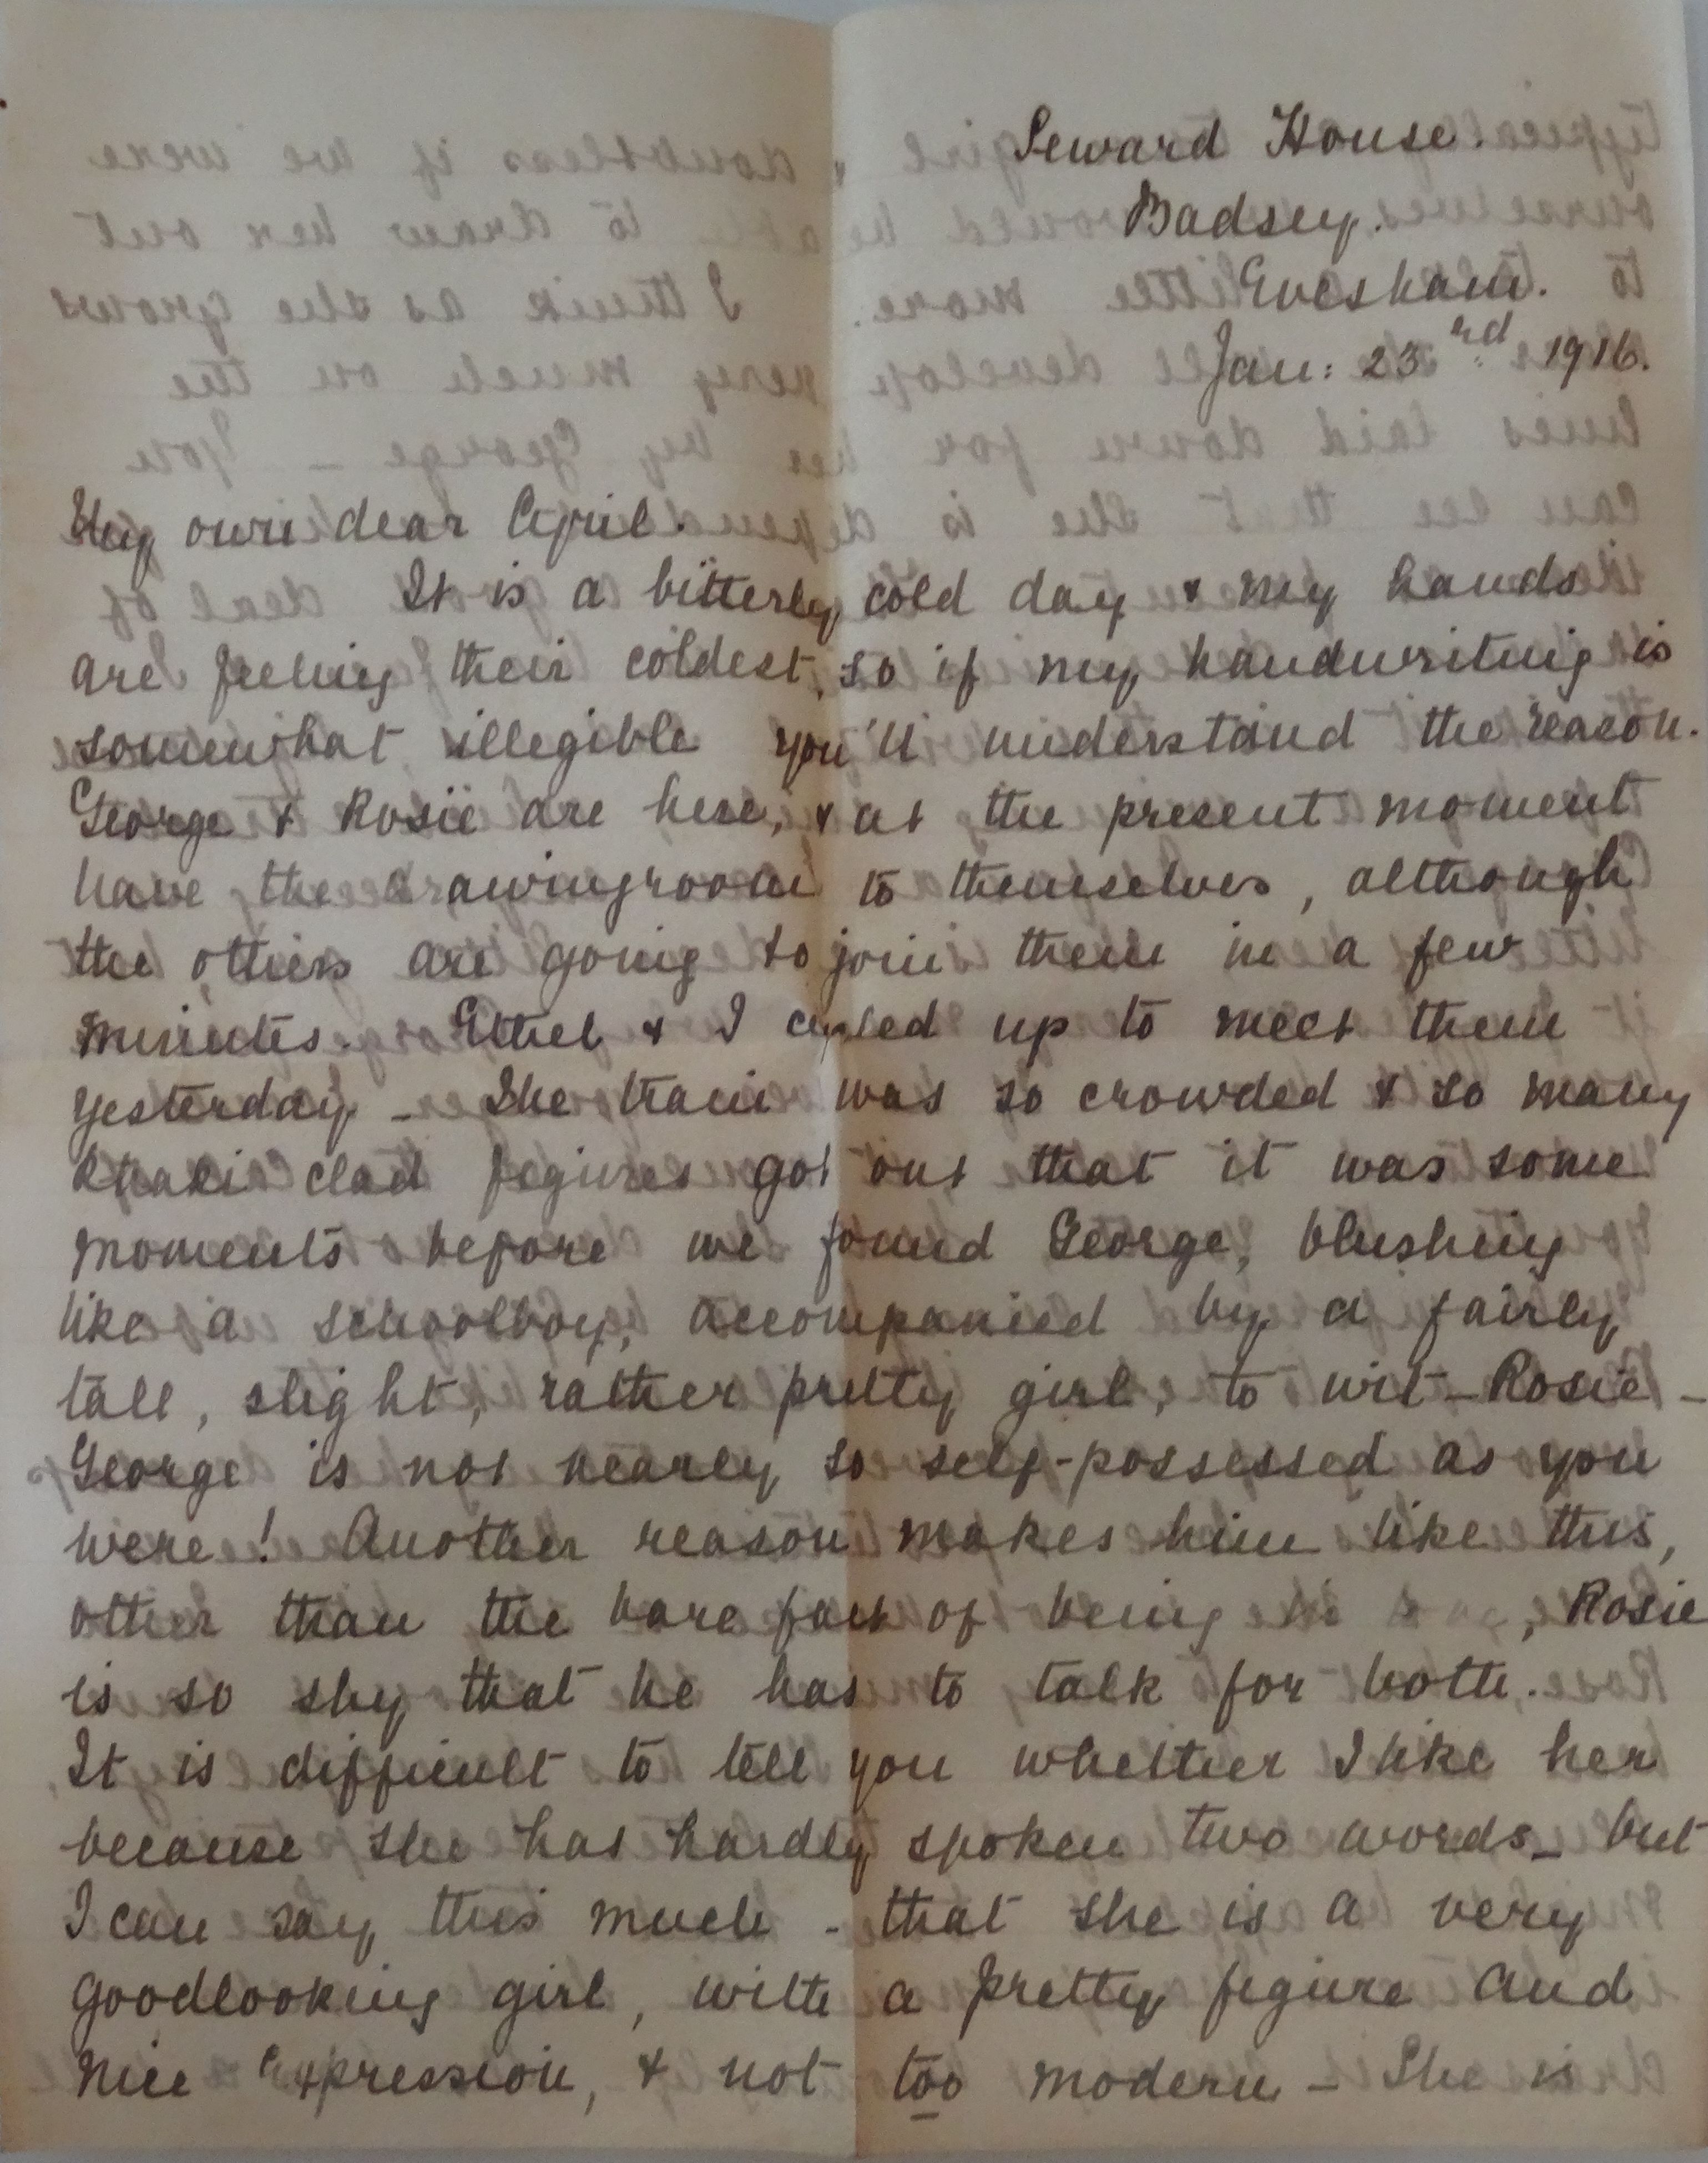 Seward House.
Badsey.
Evesham.
Jan: 23rd. 1916.
My own dear Cyril.
It is a bitterly cold day & my hands
are feeling their coldest, so if my handwriting is
somewhat illegible you'll understand the reason.
George & Rosie are here, & at the present moment
have the drawingroom to themselves, although
the others are going to join them in a few
minutes. Ethel & I cycled up to meet them
yesterday - The train was so crowded & so many
khaki clad figures got out that it was some
moments before we found George, blushing
like a schoolboy, accompanied by a fairly
tall, slight, rather pretty girl, to wit - Rosie -
George is not nearly so self-possessed as you
were! Another reason makes him like this,
other than the bare fact of being , Rosie
is so shy that he has to talk for both.
It is difficult to tell you whether I like her
because she has hardly spoken two words - but
I can say this much - that she is a very
goodlooking girl, with a pretty figure and
nice expression, & not too modern - She is